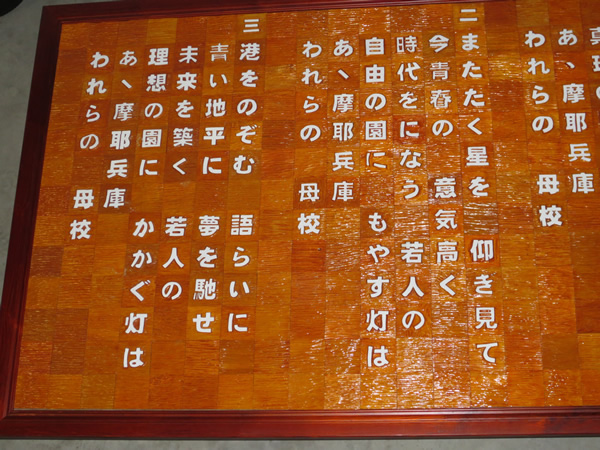 あゝ摩耶兵庫
われらの　母校
二
またたく星を　仰き見て
今青春の　意気高く
時代をになう　若人の
自由の園に　もやす灯は
あゝ摩耶兵庫
われらの　母校
三
港をのぞむ　語らいに
青い地平に　夢を馳せ
未来を築く　若人の
理想の園に　かかぐ灯は
あゝ摩耶兵庫
われらの　母校